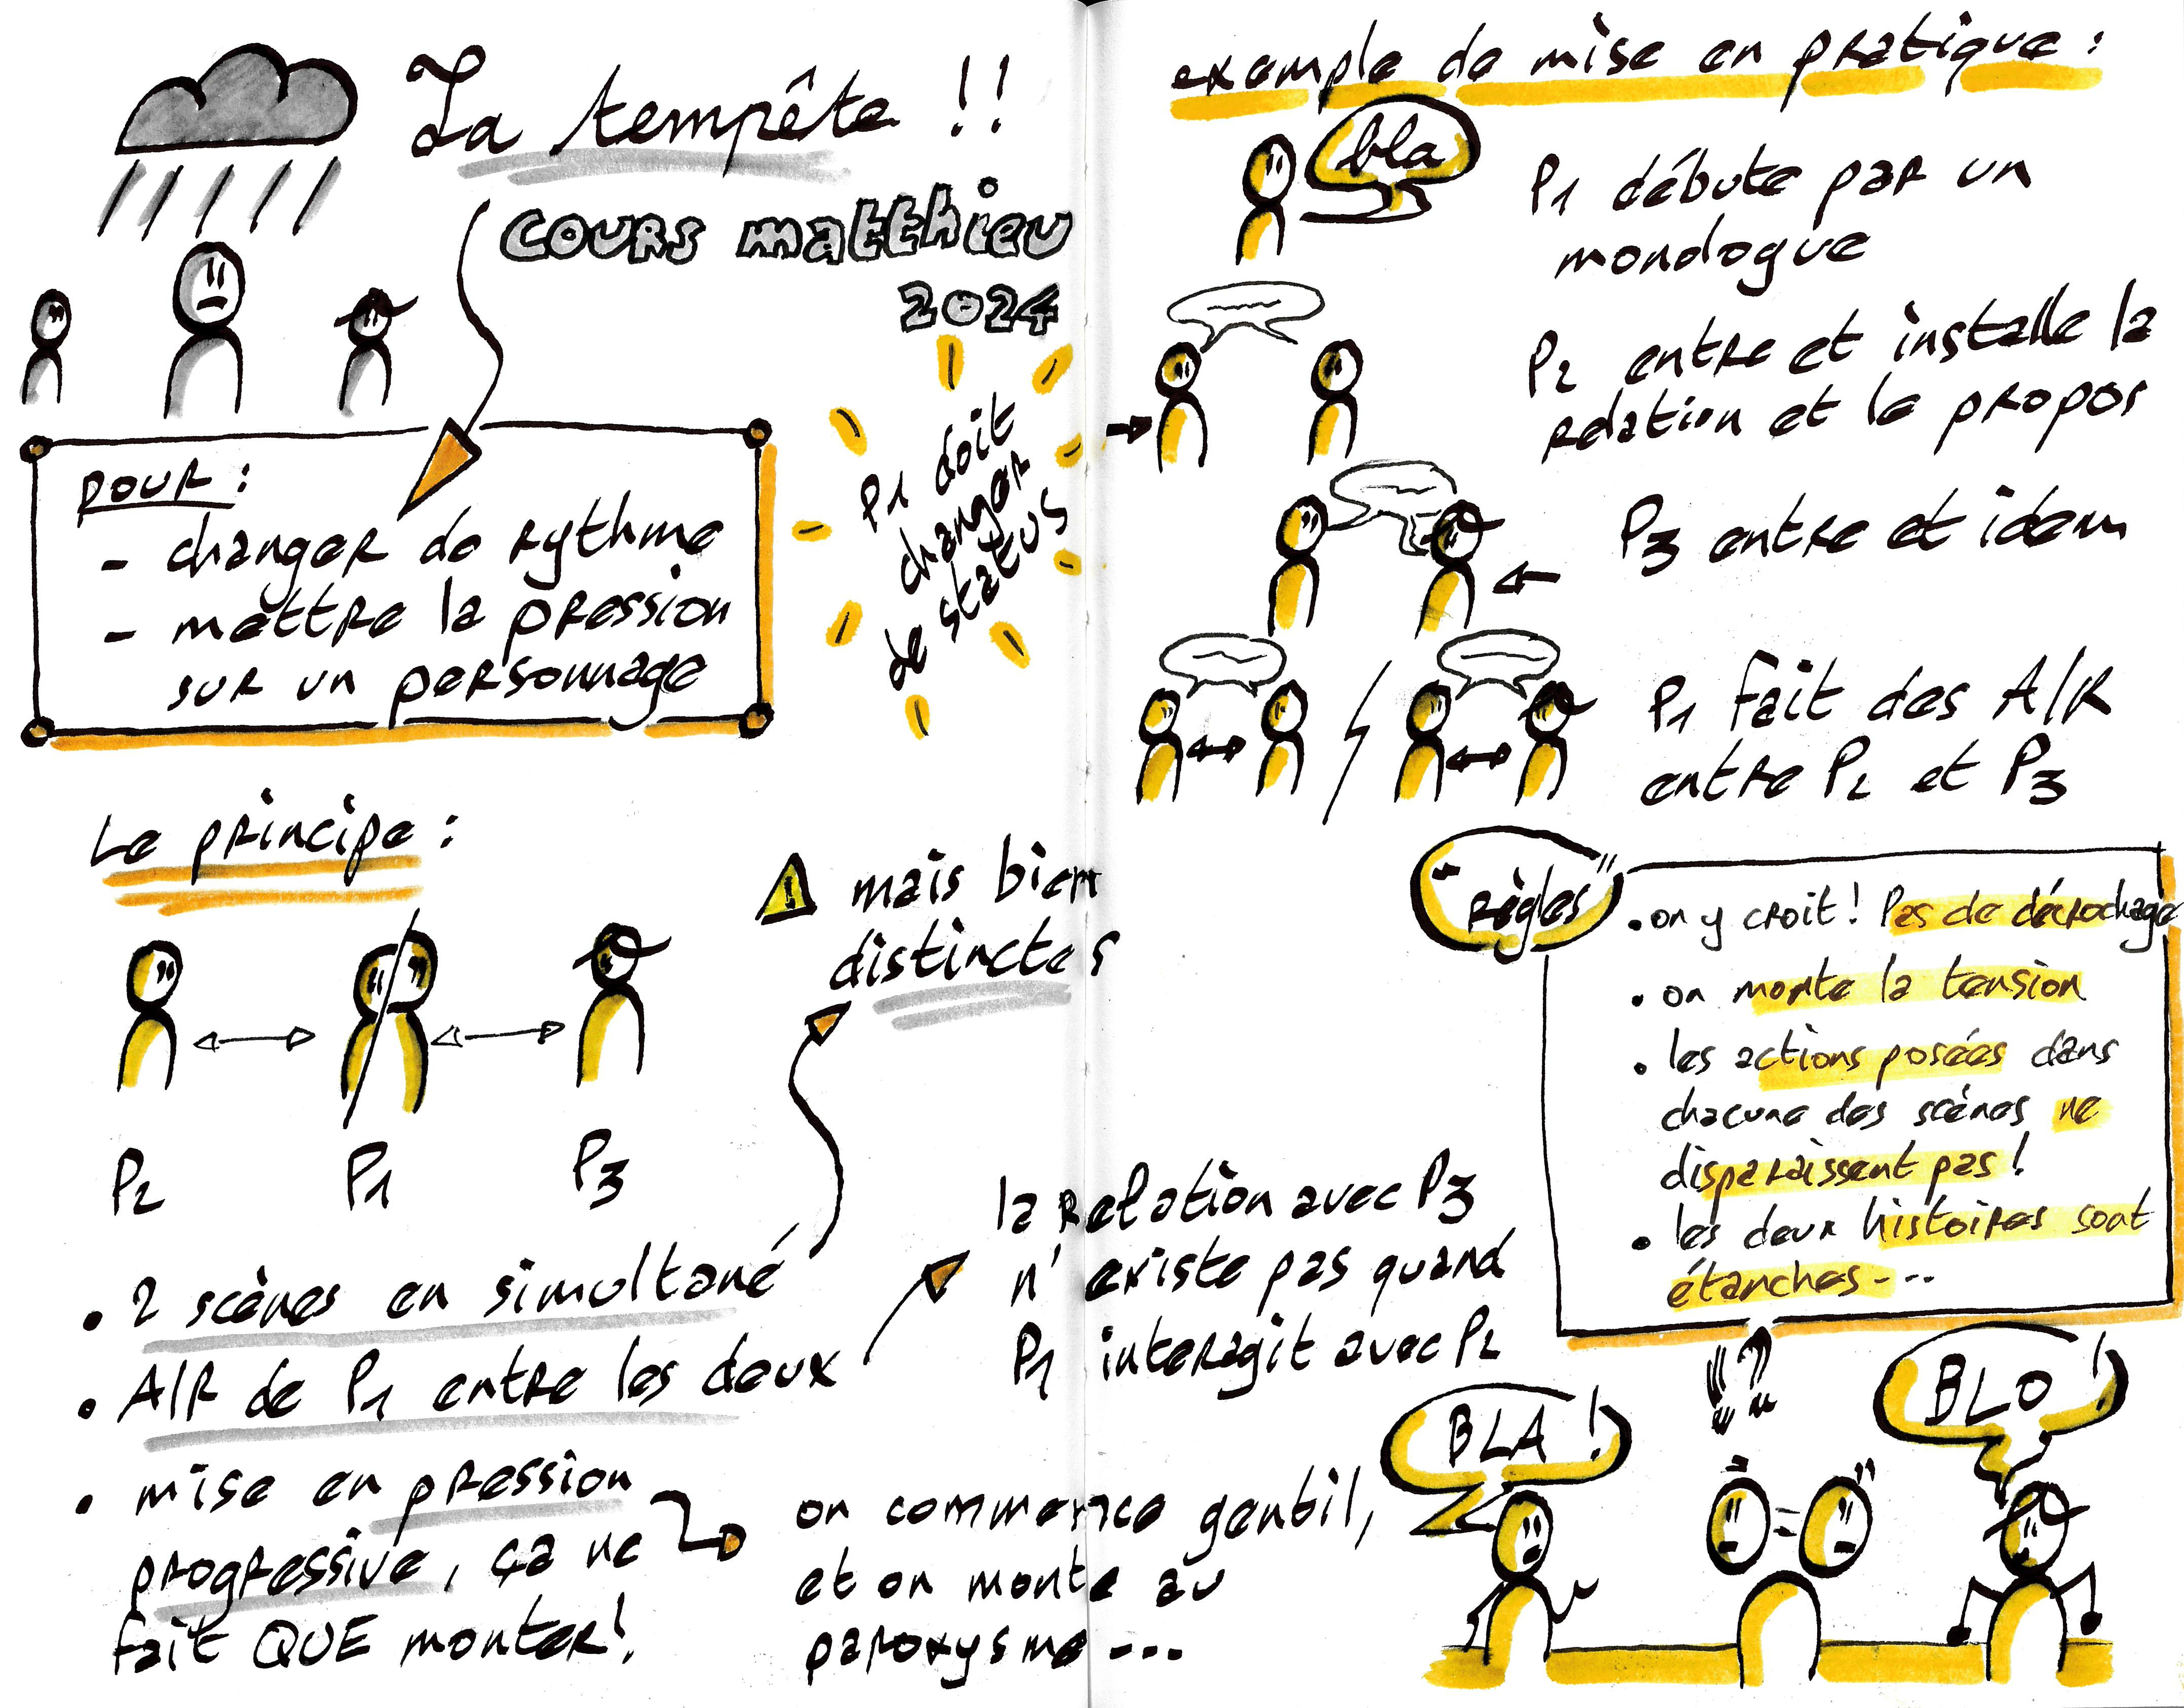 La tempête !!
cours matthieu
2024
pour :
- changer de rythme
- mettre la pression
sur un personnage
P1 doit
changer
de status
Le principe :
⚠ mais bien
distinctes
P2 P1 P3
• 2 scènes en simultané
• A/R de P1 entre les deux
la relation avec P3
n'existe pas quand
P1 interagit avec P2
• mise en pression
progressive, ça ne
fait QUE monter !
on commence gentil,
et on monte au
paroxysme ---
exemple de mise en pratique :
bla
P1 débute par un
monologue
P2 entre et installe la
relation et le propos
P3 entre et idem
P1 fait des A/R
entre P2 et P3
"règles"
• on y croit ! Pas de décrochage
• on monte la tension
• les actions posées dans
chacune des scènes ne
disparaissent pas !
• les deux histoires sont
étanches ---
!?
BLA !
BLO !